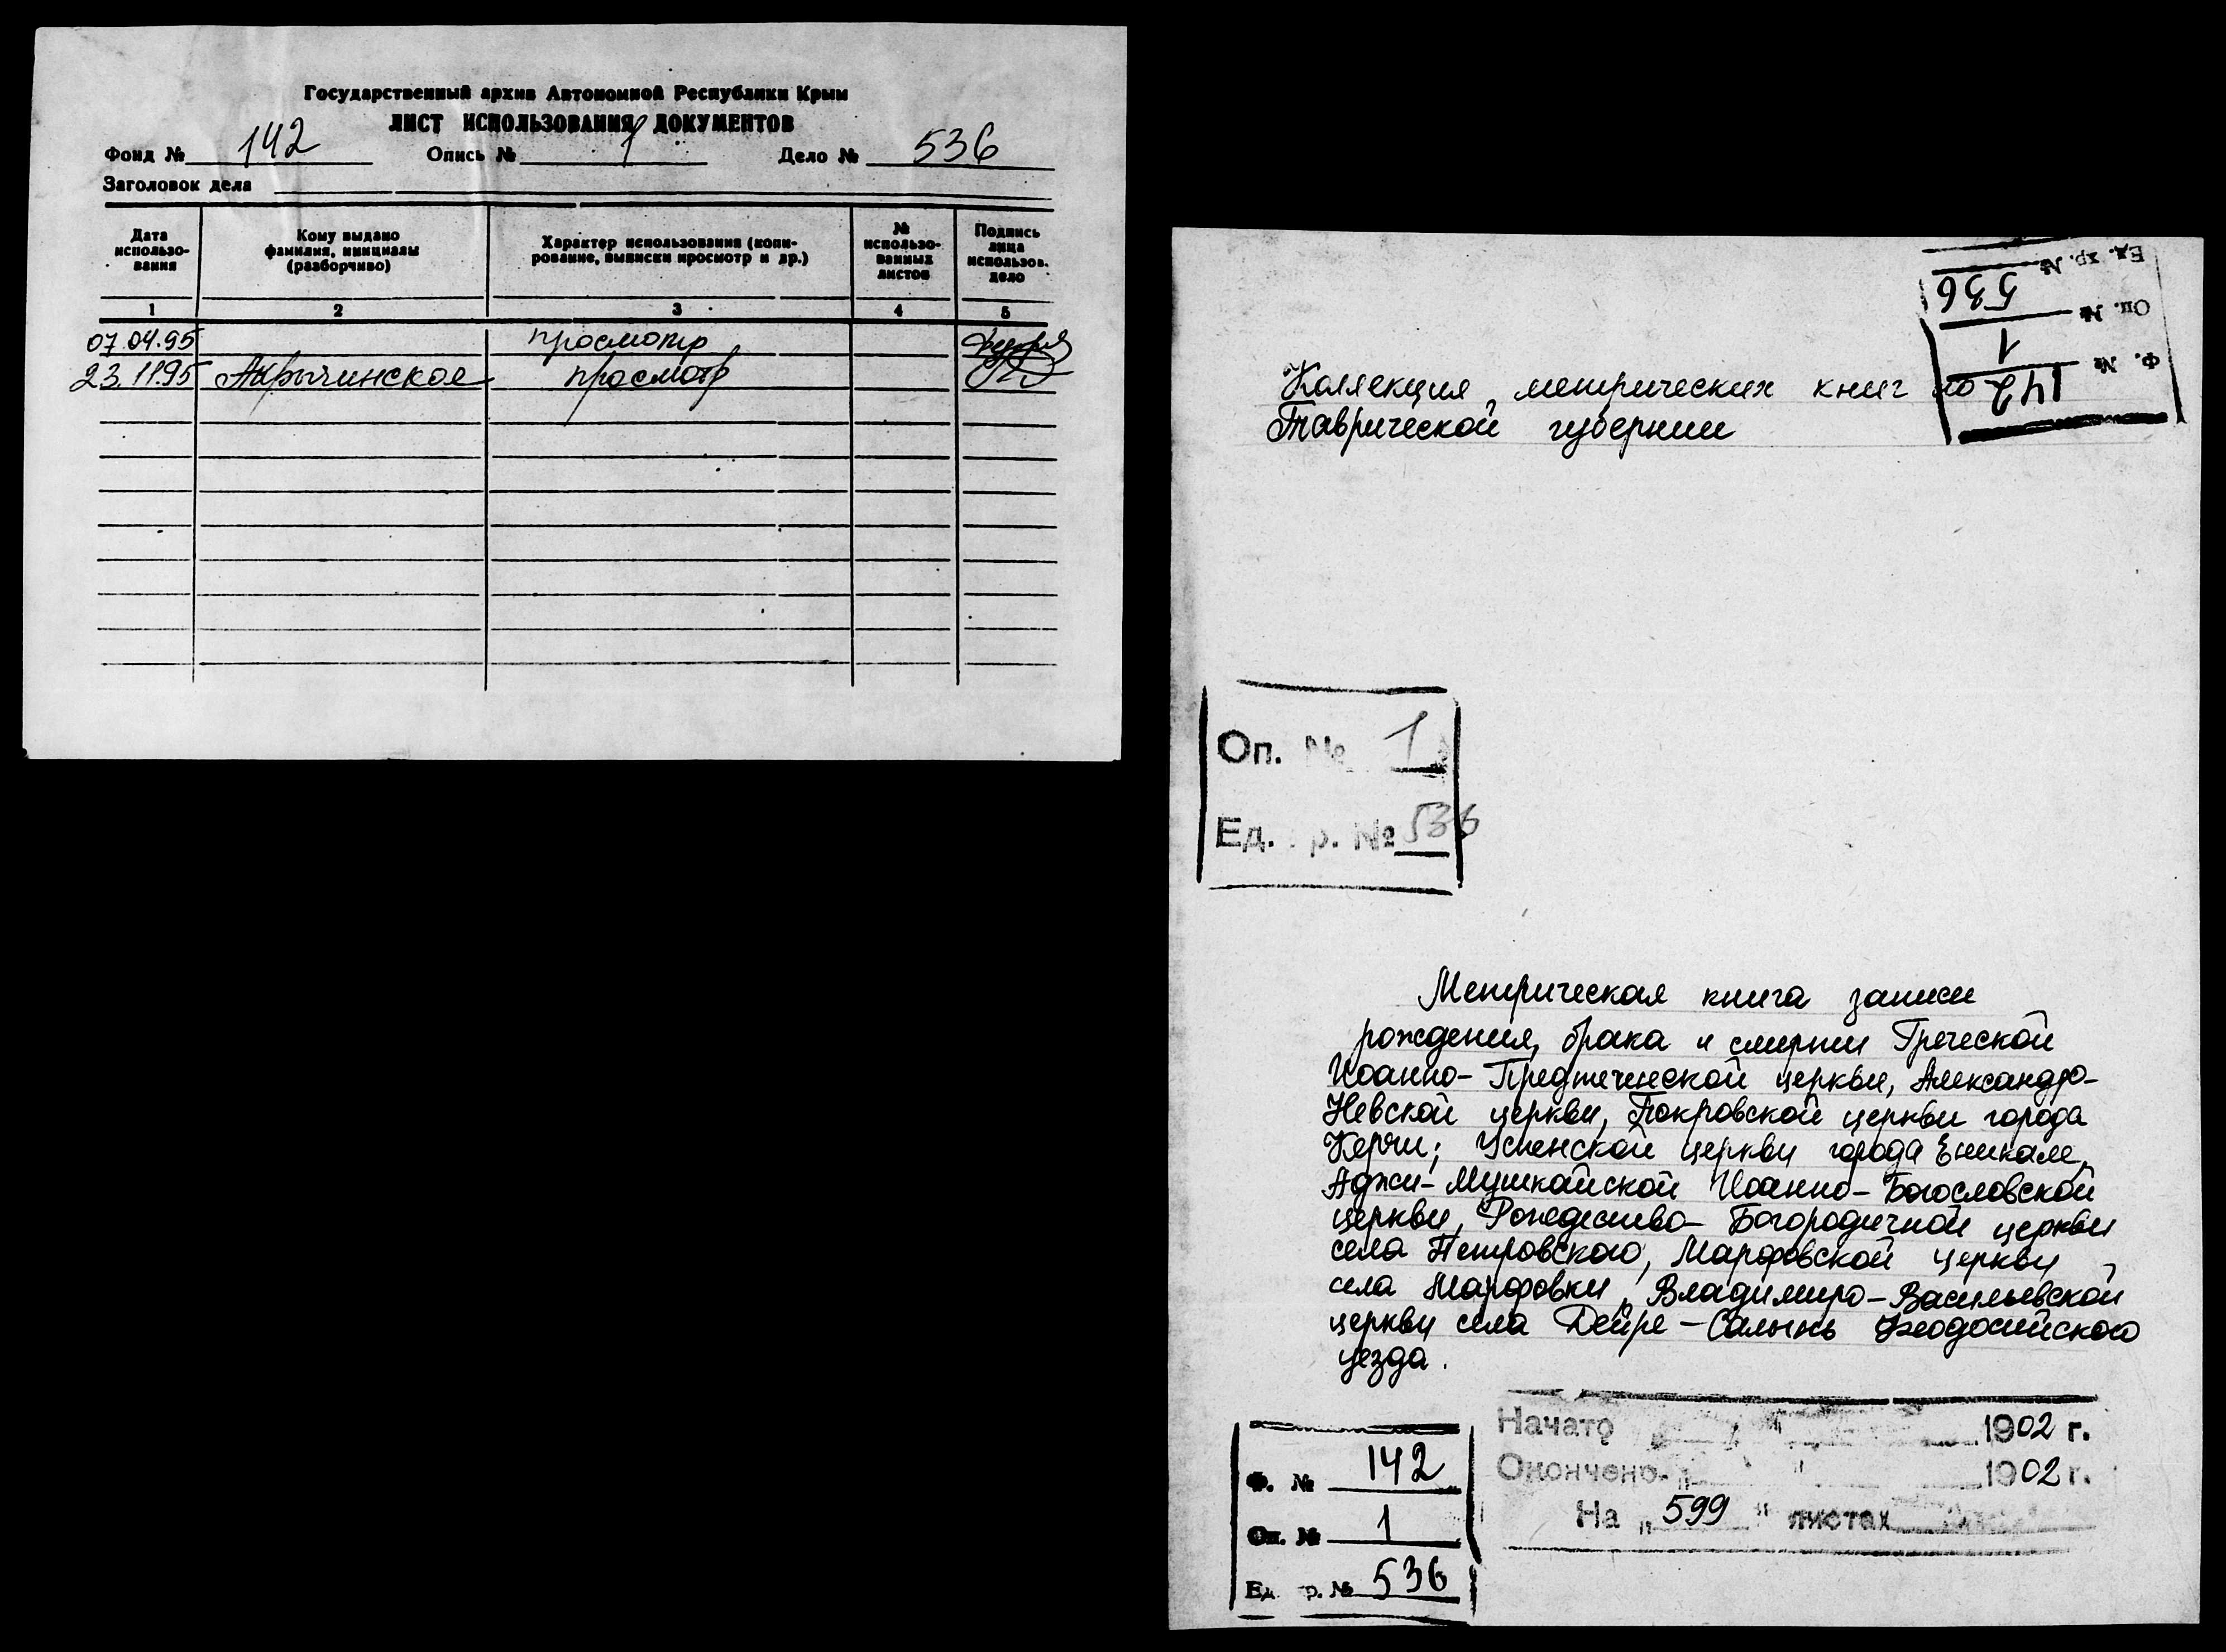 Государственный архив Автономной Республики Крым
ЛИСТ ИСПОЛЬЗОВАНИЯ ДОКУМЕНТОВ
Фонд № 142 Опись № 1 Дело № 536
Заголовок дела
Дата использо-вания
Кому выдано фамилия, инициалы (разборчиво)
Характер использования (копи-рование, выписки просмотр и др.)
№ использо-ванных листов
Подпись лица использов. дело
1 2 3 4 5
07.04.95 просмотр
23.11.95 просмотр
Ф. № 142
Оп. № 1
Ед. хр. № 536
Коллекция метрических книг по
Таврической губернии
Оп. № 1
Ед. р. № 536
Метрическая книга записи
рождения, брака и смерти Греческой
Иоанно-Предтеченской церкви, Александро-
Невской церкви, Покровской церкви города
Керчи; Успенской церкви города Еникале,
Аджи-Мушкайской Иоанно-Богословской
церкви, Рождество-Богородичной церкви
села Петровского, Марфовской церкви
села Марфовки, Владимиро-Васильевской
церкви села Дейре-Салынь Феодосийского
уезда.
Начато " " 1902 г.
Окончено " " 1902 г.
На „599" листах
Ф. № 142
Оп. № 1
Ед. р. № 536